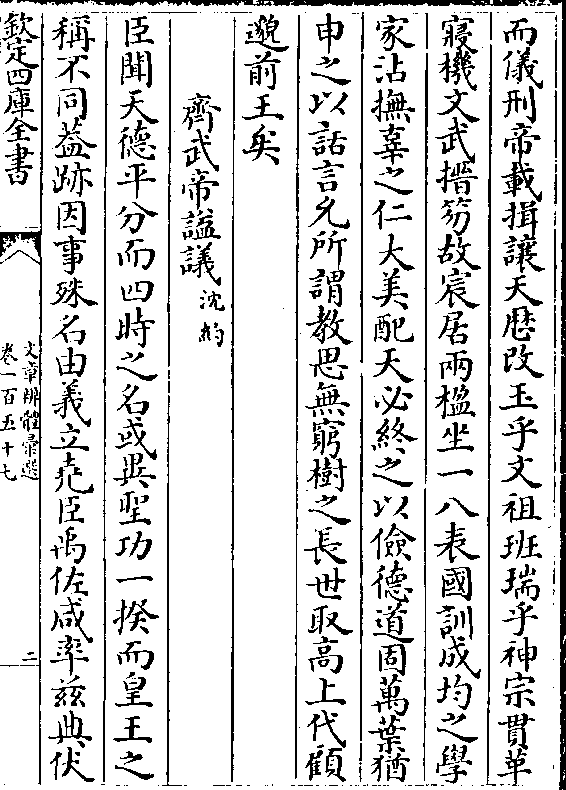 而儀刑帝載揖讓天厯改玉乎文祖班瑞乎神宗貫革
寢機文武搢笏故宸居兩楹坐一八表國訓成均之學
家沾撫辜之仁大美配天必終之以儉德道固萬葉猶
申之以話言允所謂教思無窮樹之長世取高上代顧
邈前王矣
齊武帝謚議沈約
臣聞天德平分而四時之名或異聖功一揆而皇王之
稱不同葢跡因事殊名由義立堯臣禹佐咸率兹典伏
欽定四庫全書
文章辨體彚選
卷一百五十七
二